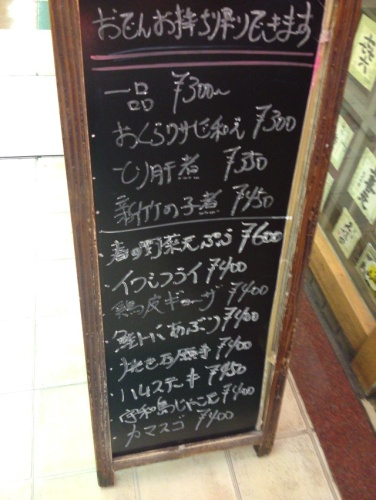 おでんお持ち帰りできます
一品 ¥300〜
おくらワサビ和え ¥300
とり肝煮 ¥350
新竹の子煮 ¥450
・春の野菜天ぷら ¥600
・イワシフライ ¥400
・鶏皮ギョーザ ¥400
・鮭トバあぶり ¥400
¥400
・ハムステーキ ¥450
・宇和島じゃこ天 ¥400
・カマスゴ ¥400